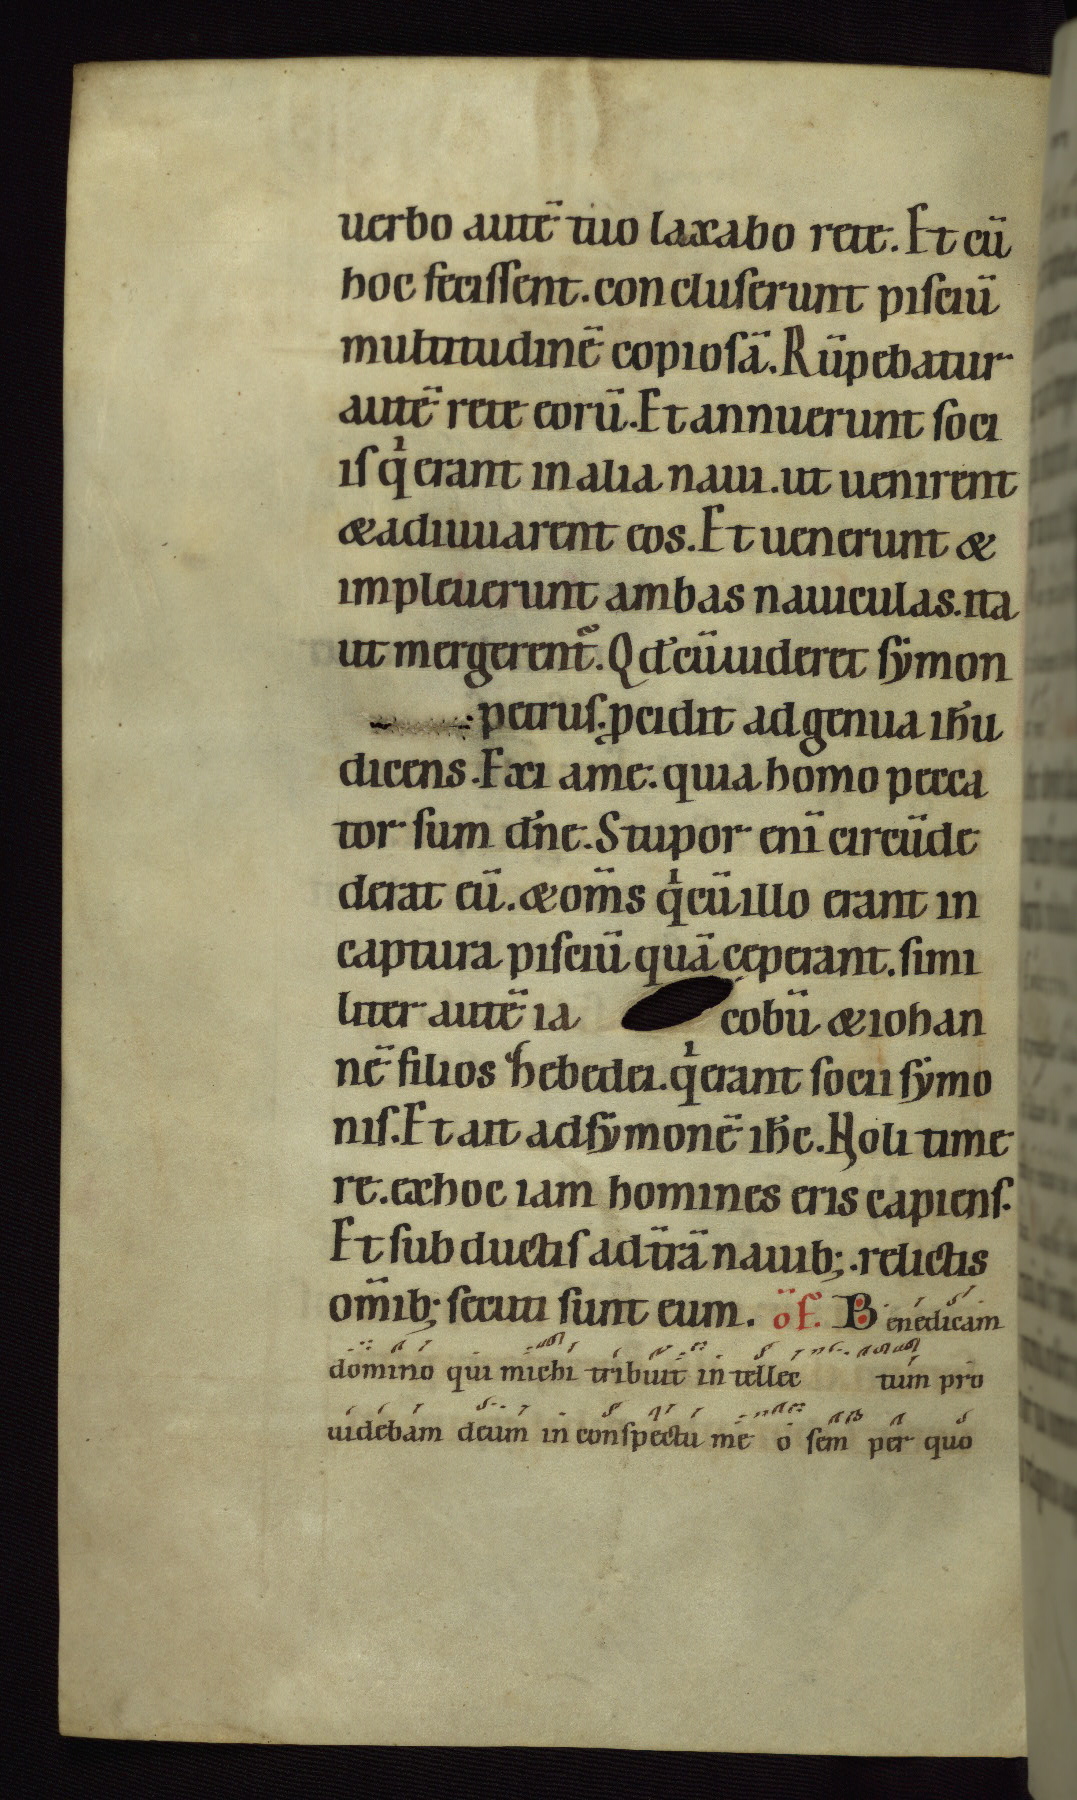 uerbo autē tuo laxabo rete. Et cū
hoc fecissent. concluserunt pisciū
multitudinē copiosā. Rūpebatur
autē rete eorū. Et annuerunt soci
is qͥ erant in alia naui. ut uenirent
& adiuuarent eos. Et uenerunt &
impleuerunt ambas nauiculas. ita
ut mergerent᷑. Qđ cū uideret sẏmon
petrus. pcidit ad genua ihu̅
dicens. Exi a me. quia homo pecca
tor sum dn̄e. Stupor eni̅ circūde
derat eū. & om̄s qͥ cū illo erant in
captura pisciū quā ceperant. simi
liter autē ia cobū & iohan
nē filios zebedei. qͥ erant socii sẏmo
nis. Et ait ad sẏmonē ihc̄. Noli time
re. ex hoc iam homines eris capiens.
Et subductis ad t̄rā nauib;. relictis
om̄ib; secuti sunt eum. o͞f. Benedicam
domino qui michi tribuit intellec tum pro
uidebam deum in conspectu me o sem per quo